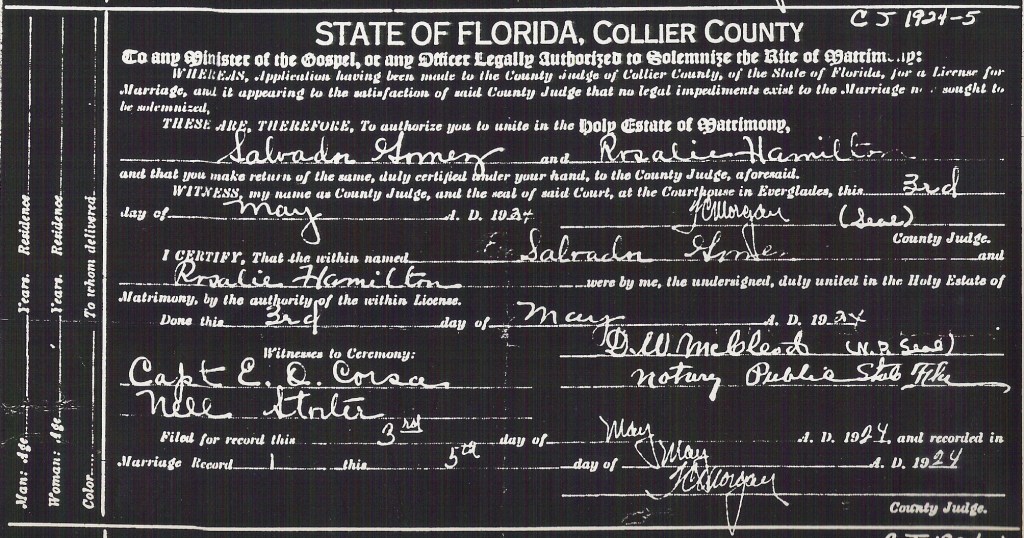 C J 1924-5
STATE OF FLORIDA, COLLIER COUNTY
To any Minister of the Gospel, or any Officer Legally Authorized to Solemnize the Rite of Matrimony:
WHEREAS, Application having been made to the County Judge of Collier County, of the State of Florida, for a License for
Marriage, and it appearing to the satisfaction of said County Judge that no legal impediments exist to the Marriage now sought to
be solemnized,
THESE ARE, THEREFORE, To authorize you to unite in the Holy Estate of Matrimony,
Salvador Gomez and Rosalie Hamilton
and that you make return of the same, duly certified under your hand, to the County Judge, aforesaid.
WITNESS, my name as County Judge, and the seal of said Court, at the Courthouse in Everglades, this 3rd
day of May A. D. 1924 Morgan (Seal)
County Judge.
I CERTIFY, That the within named Salvador and
Rosalie Hamilton were by me, the undersigned, duly united in the Holy Estate of
Matrimony, by the authority of the within License.
Done this 3rd day of May A. D. 1924
D. W. McCleod (N. P. Seal)
Witnesses to Ceremony:
Notary Public State Fla
Capt E. O. Corsa
Nell Storter
Filed for record this 3rd day of May A. D. 1924, and recorded in
Marriage Record 1 this 5th day of May A. D. 1924
Morgan
County Judge.
Man: Age Years. Residence
Woman: Age Years. Residence
Color To whom delivered